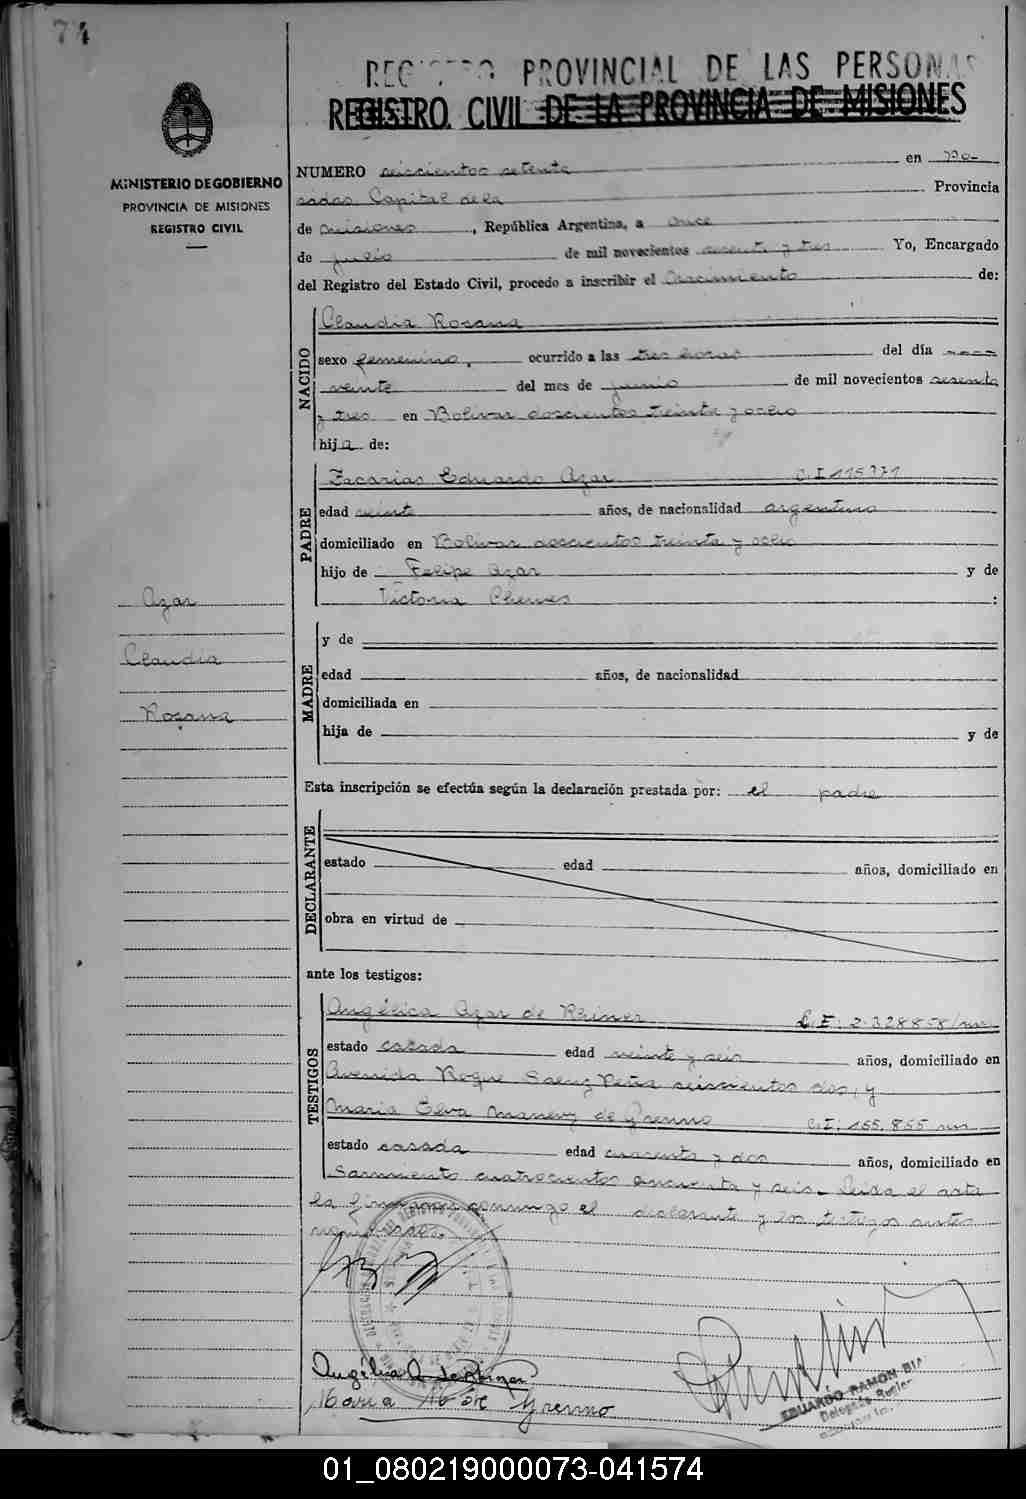 74
REGISTRO PROVINCIAL DE LAS PERSONAS
REGISTRO CIVIL DE LA PROVINCIA DE MISIONES
MINISTERIO DE GOBIERNO
PROVINCIA DE MISIONES
REGISTRO CIVIL
NUMERO seiscientos setenta en Po-
sadas Capital de la Provincia
de Misiones, República Argentina, a once
de julio de mil novecientos sesenta y tres Yo, Encargado
del Registro del Estado Civil, procedo a inscribir el Nacimiento de:
NACIDO
Claudia Rosana
sexo femenino, ocurrido a las tres horas del día
veinte del mes de junio de mil novecientos sesenta
y tres en Bolivar doscientos treinta y ocho
hija de:
PADRE
Zacarias Eduardo Azar C.I 115.771
edad veinte años, de nacionalidad argentino
domiciliado en Bolivar doscientos treinta y ocho
hijo de Felipe Azar y de
Victoria Chemes :
Azar
Claudia
Rosana
MADRE
y de
edad años, de nacionalidad
domiciliada en
hija de y de
Esta inscripción se efectúa según la declaración prestada por: el padre
DECLARANTE
estado edad años, domiciliado en
obra en virtud de
ante los testigos:
TESTIGOS
Angélica Azar de L.E. 2.328858
estado casada edad veinte y seis años, domiciliado en
Avenida Roque Saenz Peña seiscientos dos, y
Maria Elva de C.I: 155.855
estado casada edad cuarenta y dos años, domiciliado en
Sarmiento cuatrocientos cincuenta y seis. Leida el acta
la firmaron conmigo el declarante y los testigos antes
Angélica A de
Maria de
EDUARDO RAMON
Delegado
01_080219000073-041574